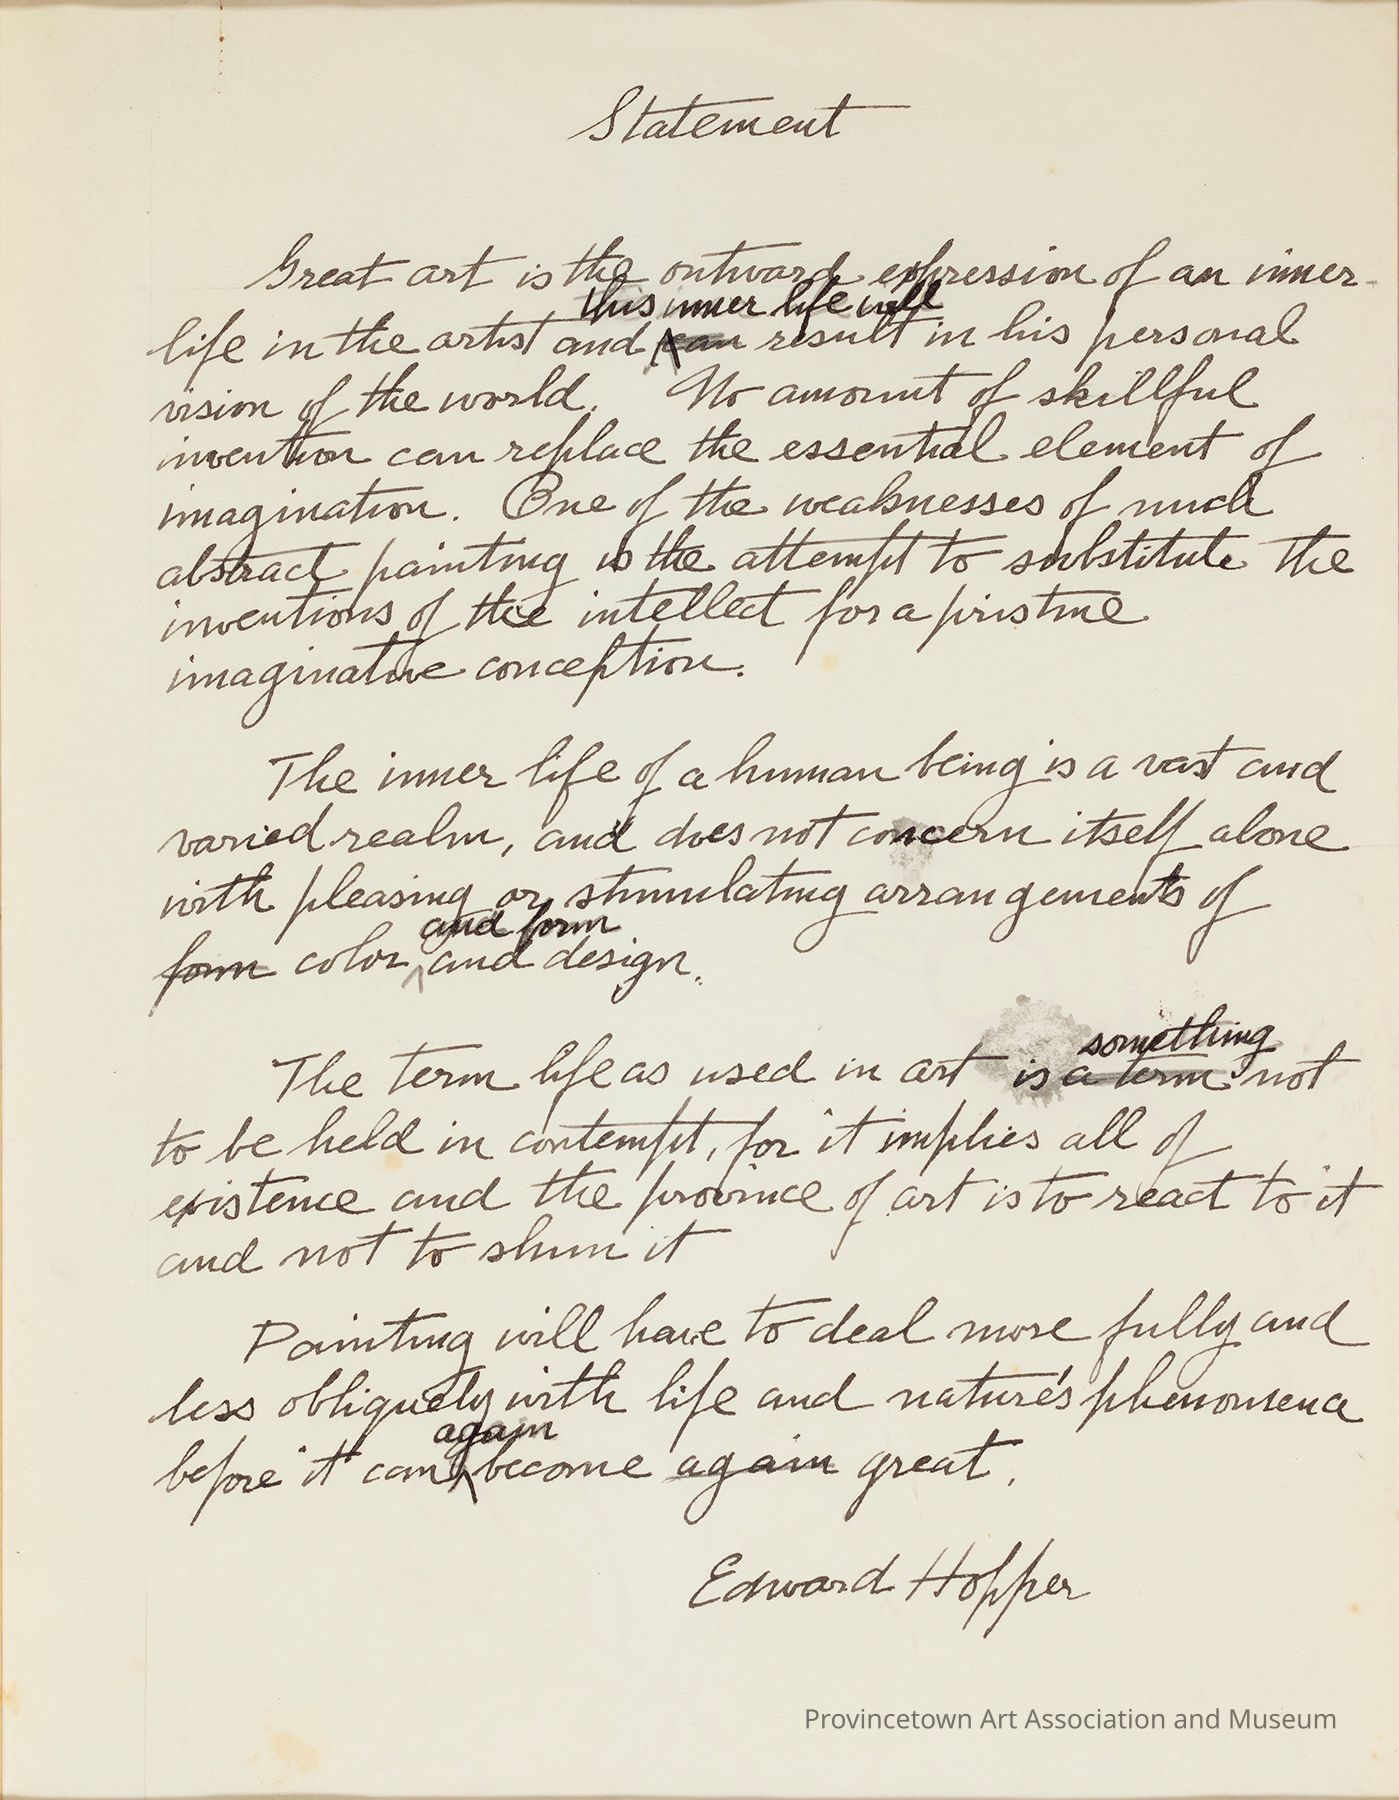 Statement
Great art is the outward expression of an inner
this inner life will
life in the artist and can result in his personal
vision of the world. No amount of skillful
invention can replace the essential element of
imagination. One of the weaknesses of much
abstract painting is the attempt to substitute the
inventions of the intellect for a pristine
imaginative conception.
The inner life of a human being is a vast and
varied realm, and does not concern itself alone
with pleasing or stimulating arrangements of
and form
form color and design.
something
The term life as used in art is a term not
to be held in contempt, for it implies all of
existence and the province of art is to react to it
and not to shun it
Painting will have to deal more fully and
less obliquely with life and nature's phenomena
again
before it can become again great.
Edward Hopper
Provincetown Art Association and Museum